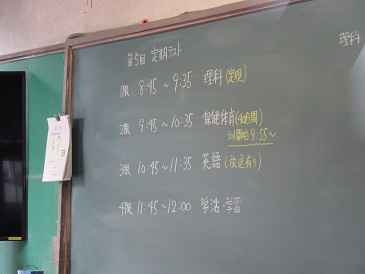 第5回 定期テスト
理科
1限 8:45～9:35 理科(定規)
2限 9:45～10:35 保健体育(40分間)
テスト開始9:55～
3限 10:45～11:35 英語(放送有り)
4限 11:45～12:00 学活・学習